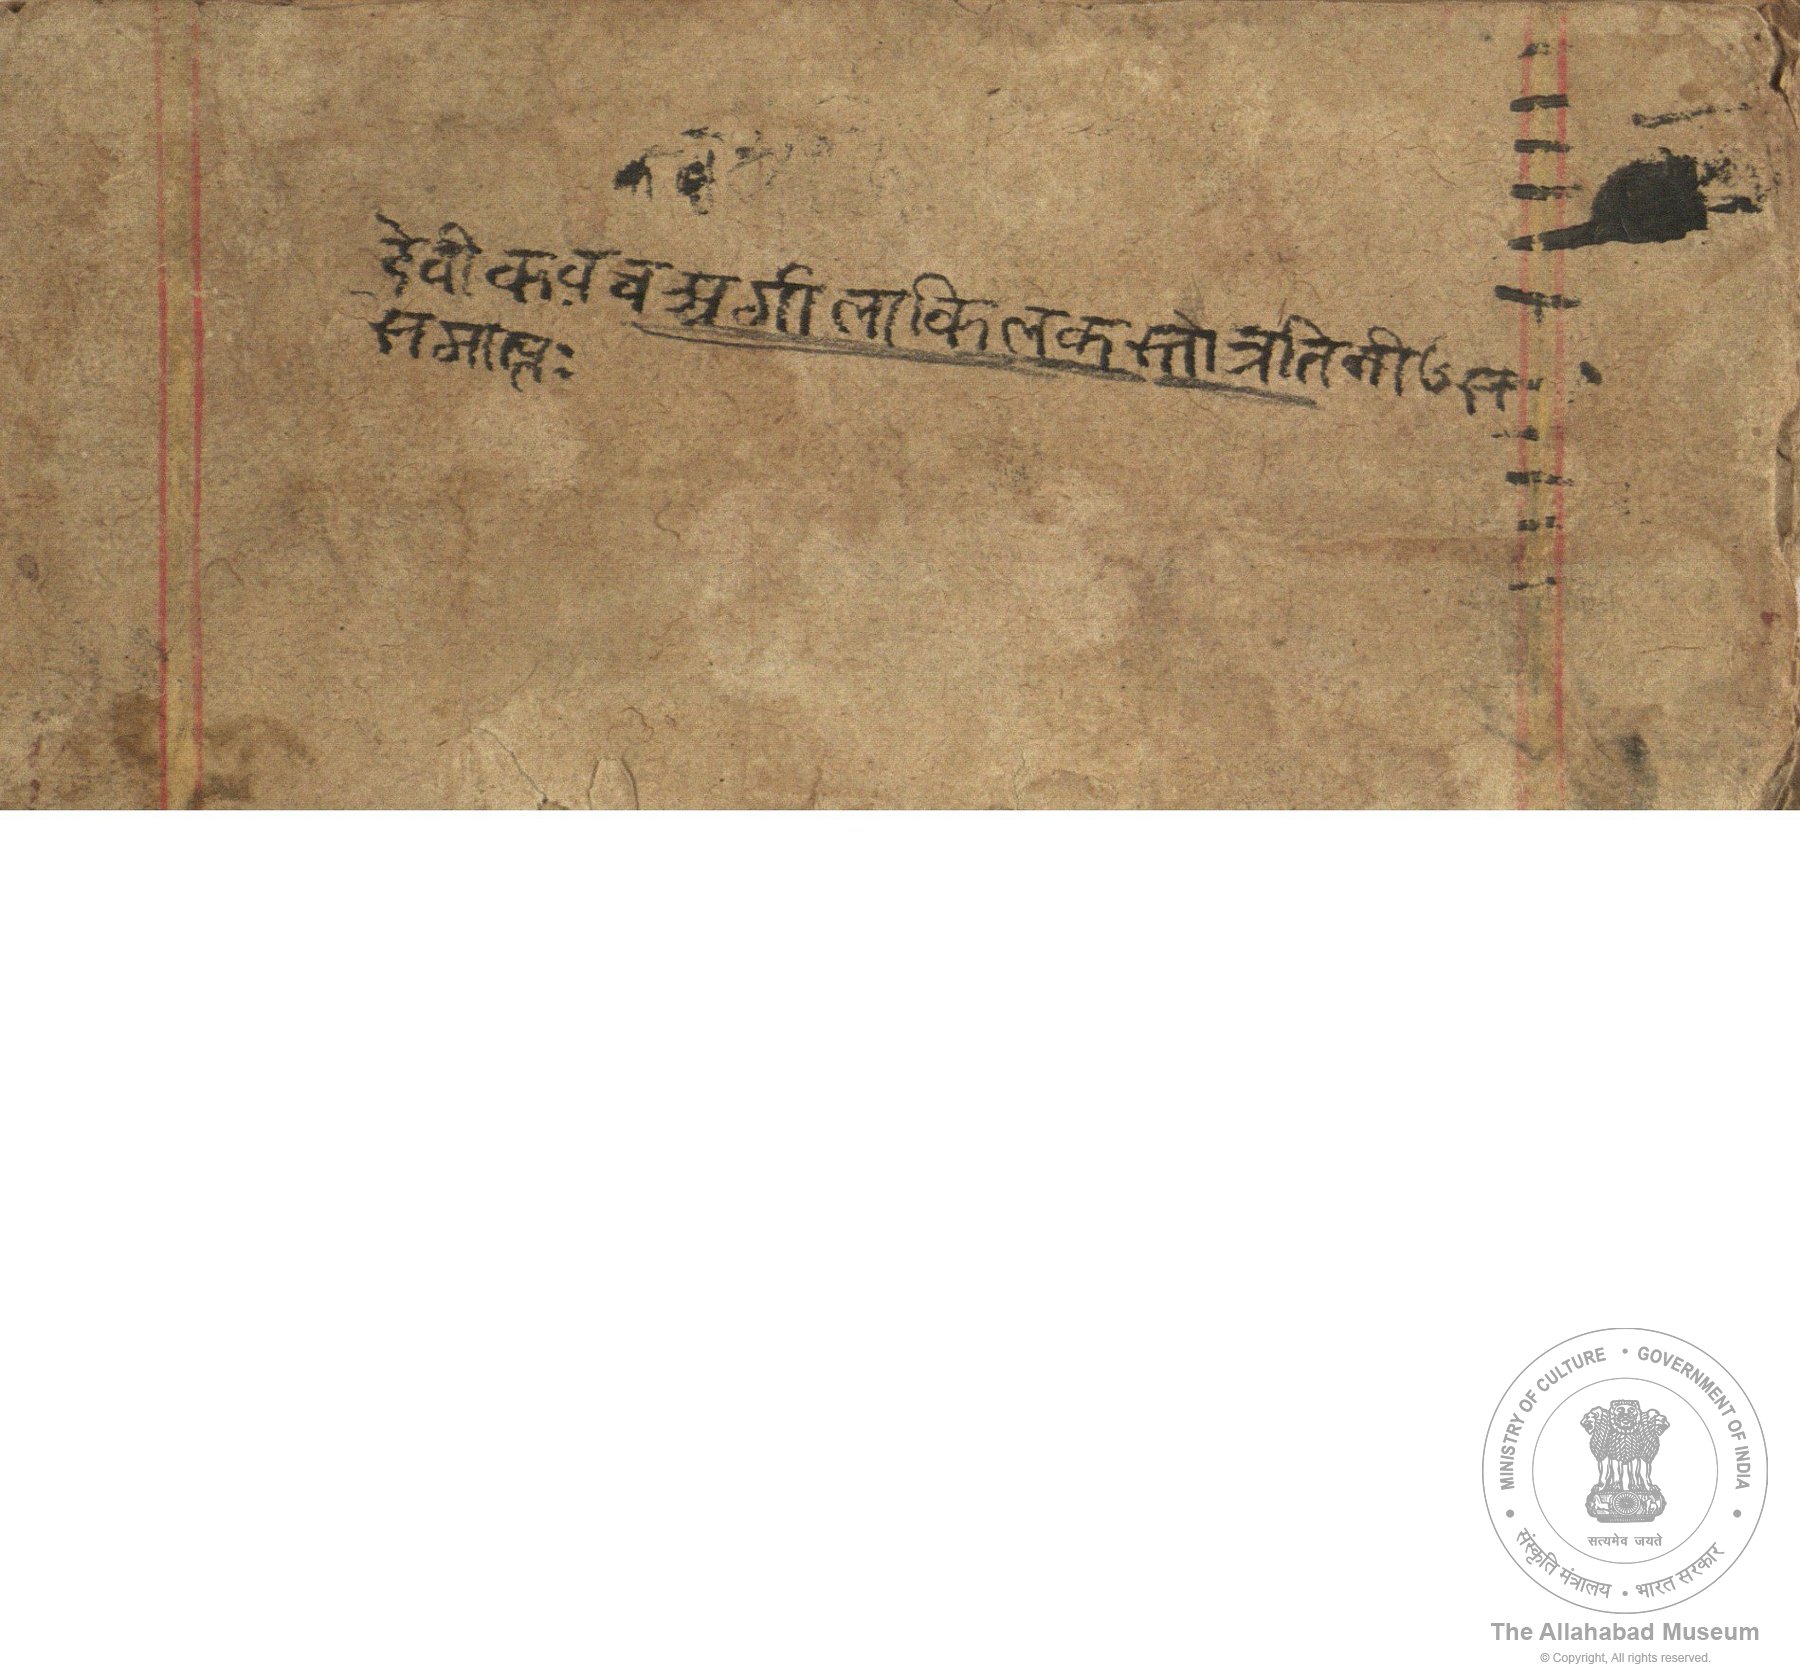 देवी कवच अर्गला किलक स्तोत्र तिनी ७ स
समाप्तः
MINISTRY OF CULTURE • GOVERNMENT OF INDIA
सत्यमेव जयते
संस्कृति मंत्रालय • भारत सरकार
The Allahabad Museum
© Copyright, All rights reserved.